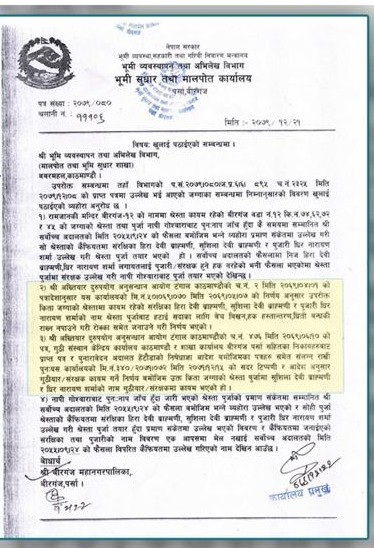 नेपाल सरकार
भूमी व्यवस्था, सहकारी तथा गरिवी निवारण मन्त्रालय
भूमी व्यवस्थापन तथा अभिलेख विभाग
भूमी सुधार तथा मालपोत कार्यालय
पर्सा, वीरगंज
पत्र संख्या : २०७९/०८०
चलानी नं. : ११०६
मिति :- २०७९/१२/२१
विषय: खुलाई पठाईएको सम्बन्धमा ।
श्री भूमि व्यवस्थापन तथा अभिलेख विभाग,
(मालपोत तथा भूमि सुधार शाखा)
बबरमहल, काठमाण्डौ ।
उपरोक्त सम्बन्धमा तहाँ विभागको
प्राप्त पत्रमा उल्लेख भई आएको जग्गाका सम्बन्धमा निम्नानुसारको विवरण खुलाई
पठाएको व्यहोरा अनुरोध छ ।
१) रामजानकी मन्दिर बीरगंज-१२ को नाममा श्रेस्ता कायम रहेको बीरगंज वडा नं.१२ कि.नं.
र ४५ को जग्गाको श्रेस्ता तथा पुर्जा नापी गोश्वाराबाट पुनः नाप जाँच हुँदा कै समयमा सम्मानित श्री
सर्वोच्च अदालतको मिति २०५५/०९/२४ को फैसला बमोजिम भन्ने व्यहोरा प्रमाण संकेतमा उल्लेख गरी
सो श्रेस्ताको कैफियतमा संरक्षिका हिरा देवी ब्राह्मणी, सुशिला देवी ब्राह्मणी र पुजारी थिर नारायण
शर्मा उल्लेख गरी श्रेस्ता पुर्जा तयार भएको हो । सर्वोच्च अदालतको फैसलामा निज हिरा देवी
पुजारी/संरक्षक हुने हक नरहेको भनी फैसला भएकोमा श्रेस्ता
पुर्जामा संरक्षक उल्लेख गरी नापी गोश्वाराबाट पुर्जा तयार भएको देखिन्छ ।
२) श्री अख्तियार दुरुपयोग अनुसन्धान आयोग टंगाल काठमाण्डौको च.नं. २ मिति २०६९/०४/०१ को
पत्रादेशानुसार यस कार्यालयको मि.नं. मिति २०७१/०५/०७ को निर्णय अनुसार उपरोक्त
कित्ता जग्गाको श्रेस्तामा कायम रहेको संरक्षिका हिरा देवी ब्राह्मणी, सुशिला देवी ब्राह्मणी र पुजारी थिर
नारायण शर्माको नाम श्रेस्ता पुर्जाबाट हटाई सदाका लागि बेच बिखन, हक हस्तान्तरण, धितो बन्धकी
राख्न नपाउने गरी रोक्का समेत जनाउने गरी निर्णय भएको ।
३) श्री अख्तियार दुरुपयोग अनुसन्धान आयोग काठमाण्डौको च.नं. ४७६ मिति २०६९/०६/१० को
पत्र, गुठी संस्थान केन्द्रिय कार्यालय काठमाण्डौ र शाखा कार्यालय बीरगंज पर्सा सहितका निकायहरुबाट
प्राप्त पत्र र पुनरावेदन अदालत हेटौडाको निषेधाज्ञा आदेश बमोजिमका पत्रहरु समेत संलग्न राखी
पुनः यस कार्यालयको मि.नं. मिति को सदर टिप्पणी र आदेश अनुसार
गुठीयार/संरक्षक कायम गर्ने निर्णय बमोजिम उक्त कित्ता जग्गाको श्रेस्ता पुर्जामा सुशिला देवी ब्राह्मणी
र थिर नारायण शर्माको नाम गुठीयार/संरक्षकमा कायम भएको हो ।
४) नापी गोश्वाराबाट पुनः नाप जाँच हुँदा जारी भएको जग्गाको श्रेस्ता पुर्जाको प्रमाण संकेतमा सम्मानित
श्री सर्वोच्च अदालतको मिति २०५५/०९/२४ को फैसला बमोजिमको भन्ने व्यहोरा उल्लेख भएको र सोही पुर्जा
श्रेस्ताको कैफियतमा संरक्षिका हिरा देवी ब्राह्मणी, सुशिला देवी ब्राह्मणी र पुजारी थिर नारायण शर्मा
उल्लेख गरी श्रेस्ता पुर्जा तयार गर्दा प्रमाण संकेतमा उल्लेख भएको विवरण र कैफियतमा जनाईएको
संरक्षिका तथा पुजारीको नाम विवरण एक आपसमा मेल नखाई सर्वोच्च अदालतको मिति
२०५५/०९/२४ को फैसला विपरित कैफियतमा उल्लेख गरिएको नाम देखिन आउँछ ।
बोधार्थ
श्री बीरगंज महानगरपालिका,
बीरगंज, पर्सा ।
कार्यालय प्रमुख